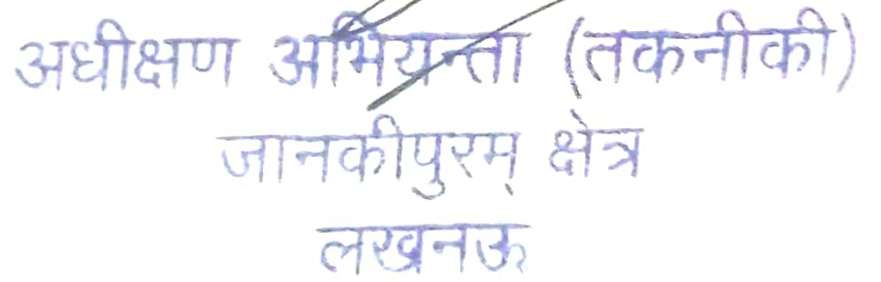 अधीक्षण अभियन्ता (तकनीकी)
जानकीपुरम् क्षेत्र
लखनऊ